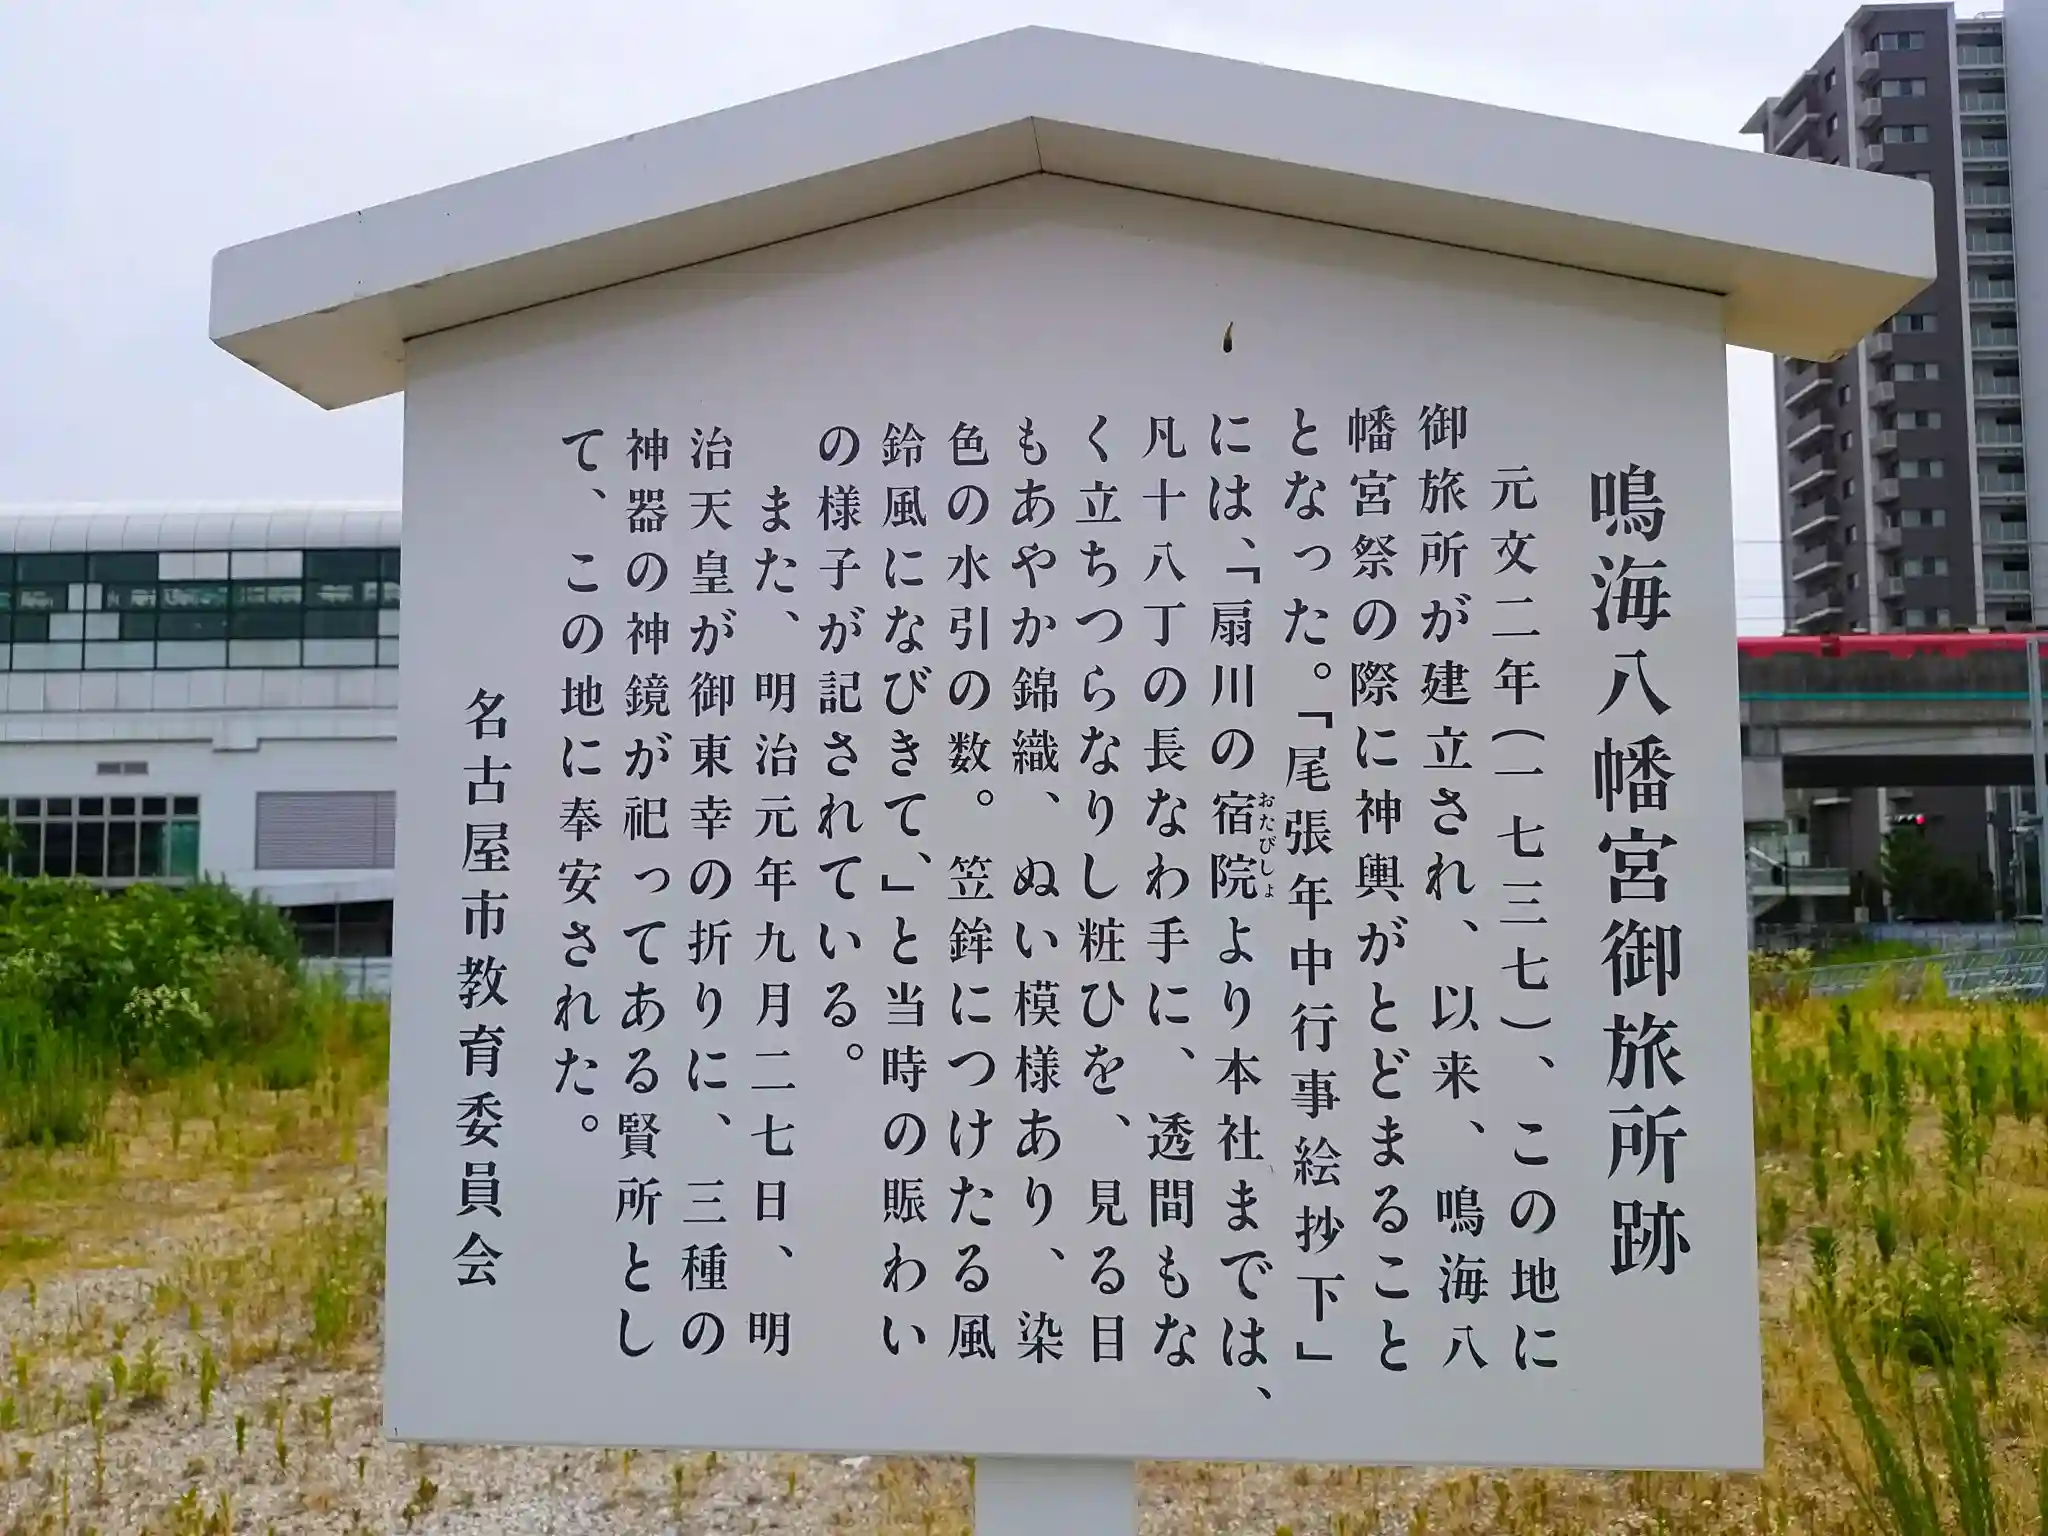 鳴海八幡宮御旅所跡
元文二年(一七三七)、この地に
御旅所が建立され、以来、鳴海八
幡宮祭の際に神輿がとどまること
となった。「尾張年中行事絵抄下」
には、「扇川の宿院おたびしょより本社までは、
凡十八丁の長なわ手に、透間もな
く立ちつらなりし粧ひを、見る目
もあやか錦織、ぬい模様あり、染
色の水引の数。笠鉾につけたる風
鈴風になびきて、」と当時の賑わい
の様子が記されている。
また、明治元年九月二七日、明
治天皇が御東幸の折りに、三種の
神器の神鏡が祀ってある賢所とし
て、この地に奉安された。
名古屋市教育委員会